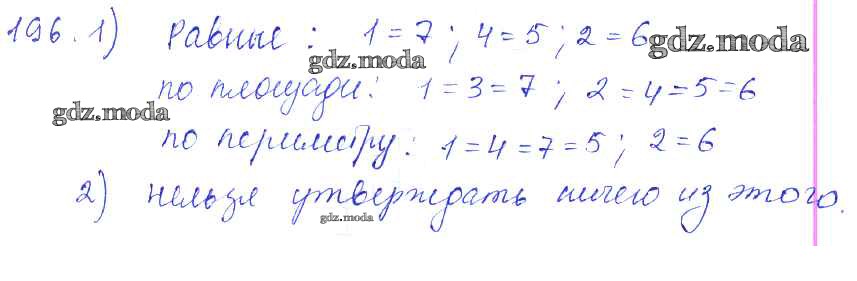 196. 1) Равные: 1 = 7; 4 = 5; 2 = 6 gdz.moda
gdz.moda
по площади: 1 = 3 = 7; 2 = 4 = 5 = 6
gdz.moda
по периметру: 1 = 4 = 7 = 5; 2 = 6
2) нельзя утверждать ничего из этого.
gdz.moda